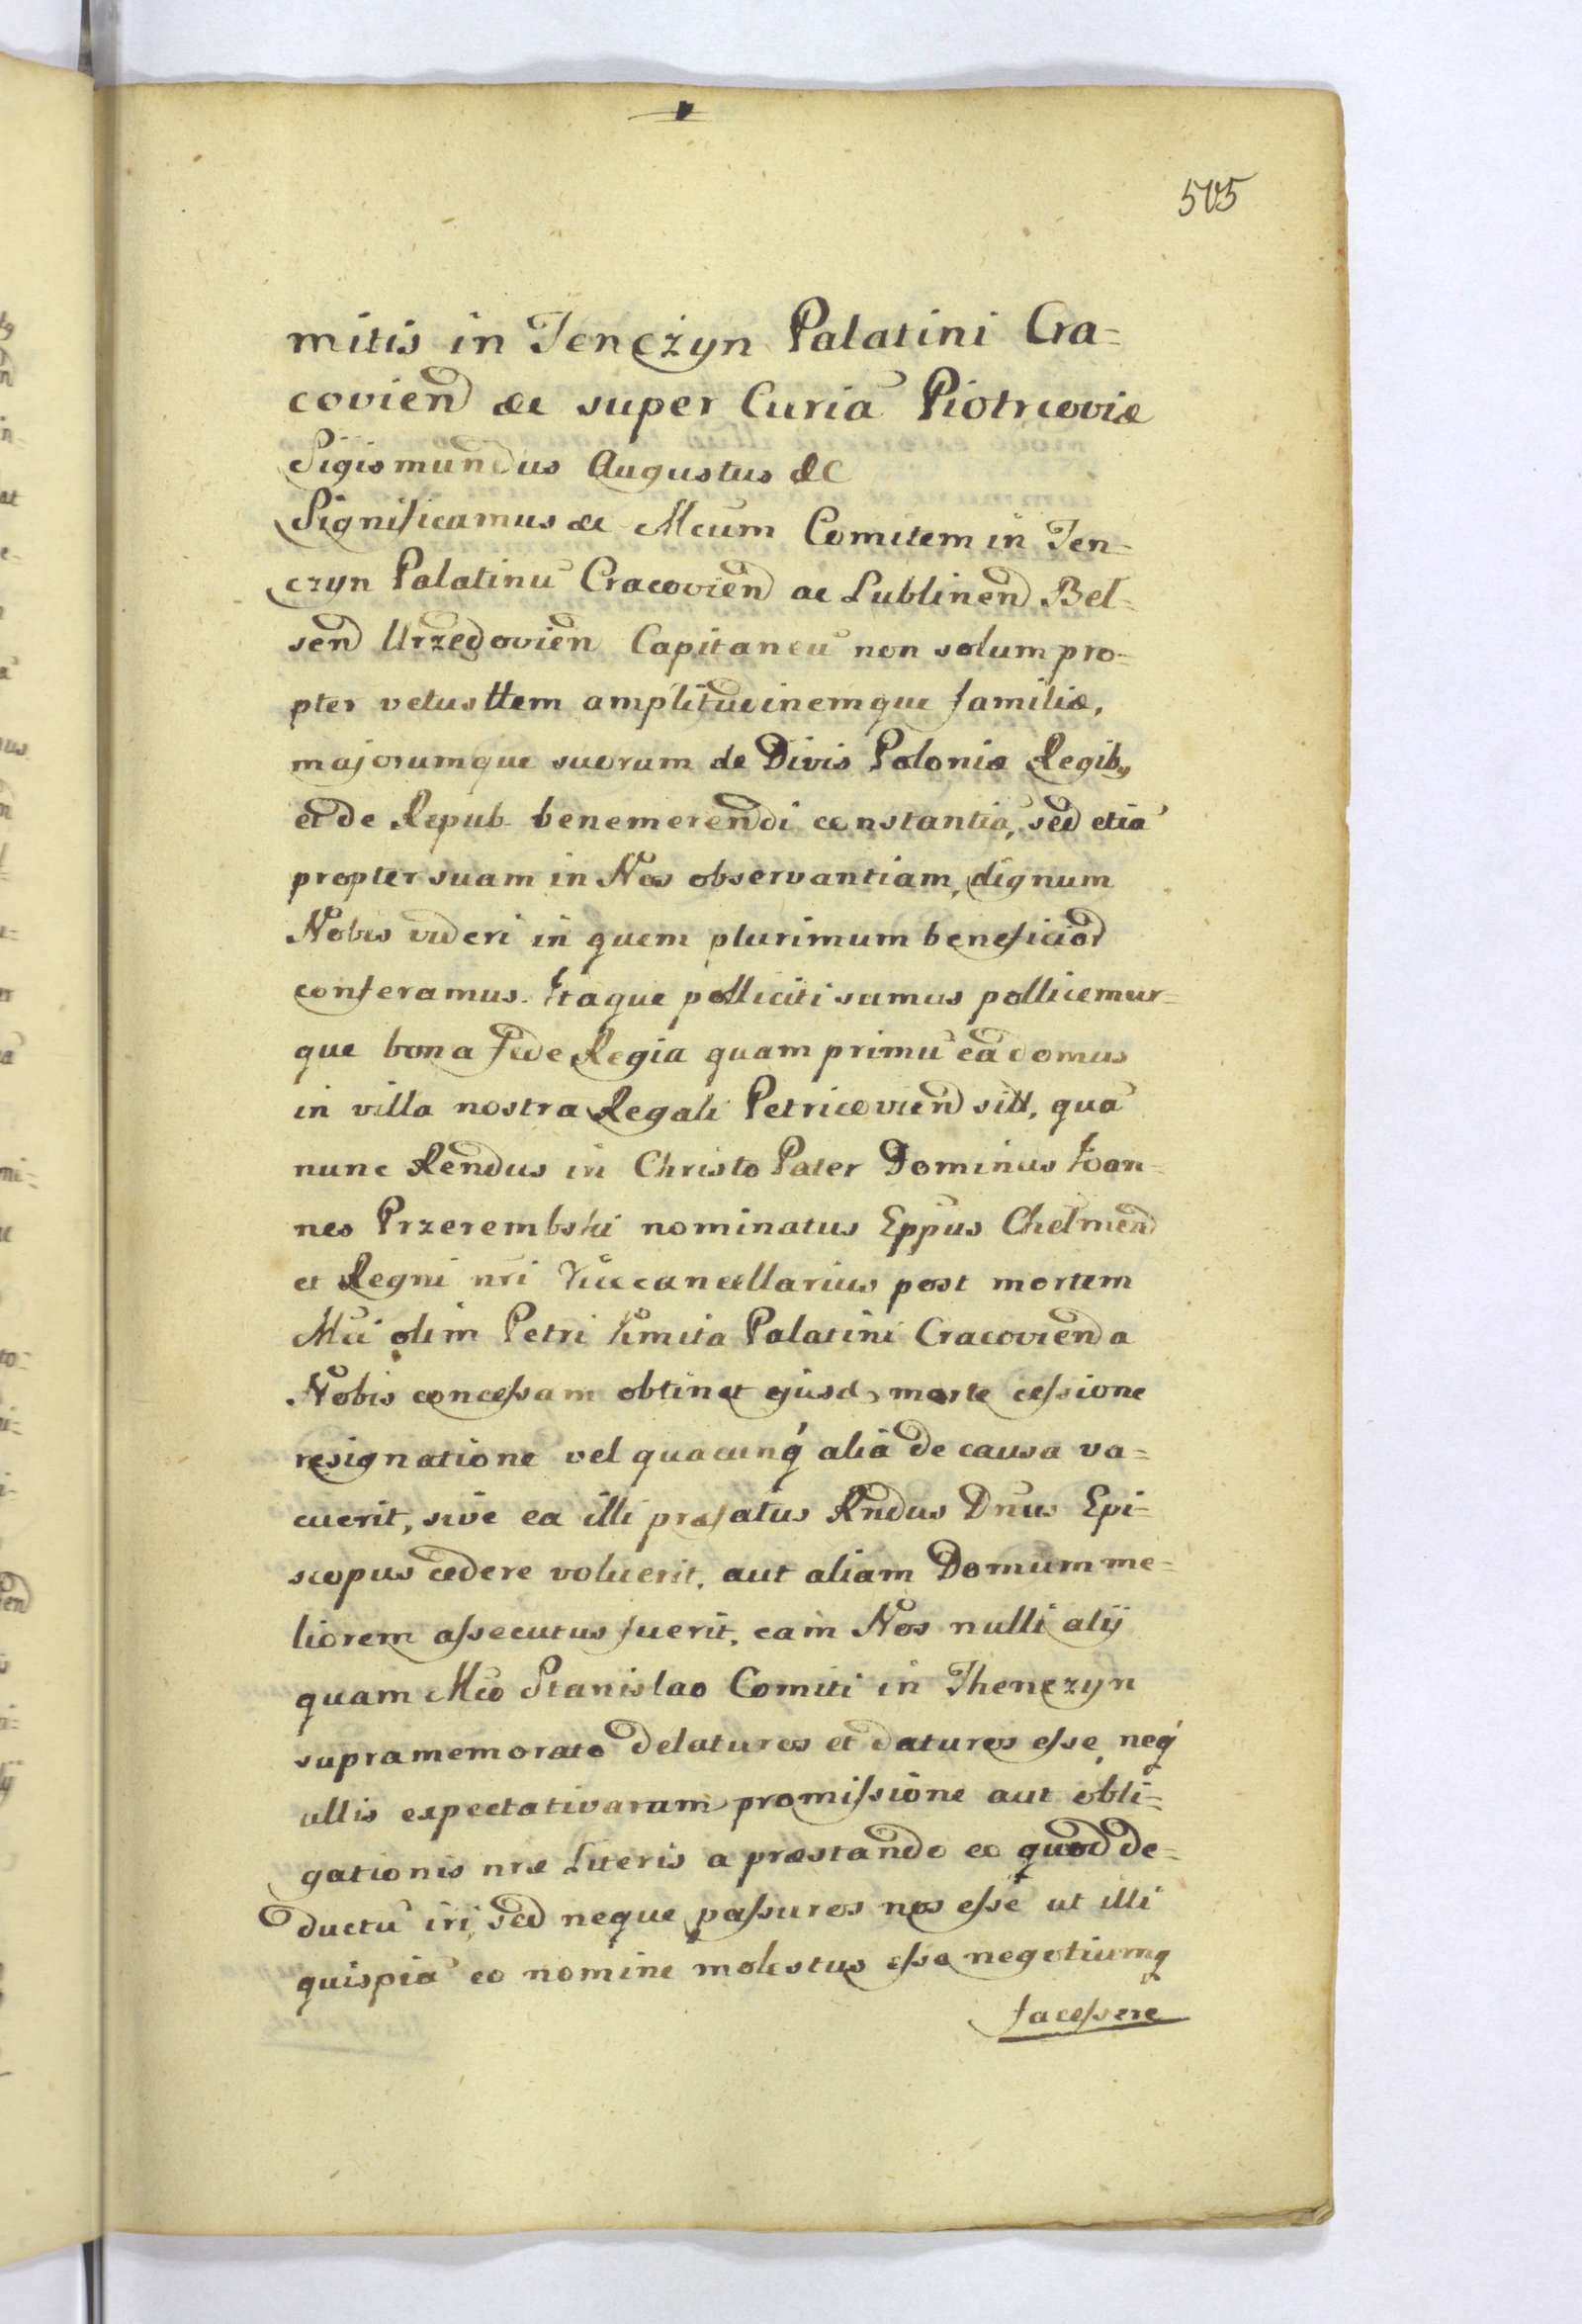 505
mitis in Tenczyn Palatini Cra=
covien̄ ac super Curiā Piotrcoviæ
Sigismundus Augustus &c
Significamus &c Mcum Comitem in Ten=
czyn Palatinū Cracovien̄ ac Lublinen̄ Bel=
sen̄ Urzedovien̄ Capitaneū non solum pro=
pter vetusttem amplitudinemque familiæ,
majorumque suorum de Divis Poloniæ Regib9
et de Repub. benemerendi constantiā, sed etiā
propter suam in Nos observantiam, dignum
Nobis videri in quem plurimum beneficior
conferamus. Itaque polliciti sumus pollicemur=
que bona fide Regia quam primū ea domus
in villa nostra Regali Petricovien̄ sitt, quā
nunc Rendus in Christo Pater Dominus Ioan=
nes Przerembski nominatus Epp̄us Chelmen̄
et Regni nr̄i Vicecancellarius post mortem
Mci olim Petri Kmita Palatini Cracovien̄ a
Nobis concessam obtinet ejusd morte cessione
resignatione vel quacunq́ aliā de causa va=
cuerit, sive ea illi præfatus Rndus Dn̄us Epi=
scopus cedere voluerit, aut aliam Domum me=
liorem assecutus fuerit, eam Nos nulli alij
quam Mco Stanislao Comiti in Thenczyn
supramemorato delaturos et daturos esse, neq́
ullis expectativarum promissione aut obli=
gationis nræ Literis a præstando eo quod de=
ductū iri, sed neque passuros nos esse ut illi
quispiā eo nomine molestus esse negotiumq
facessere